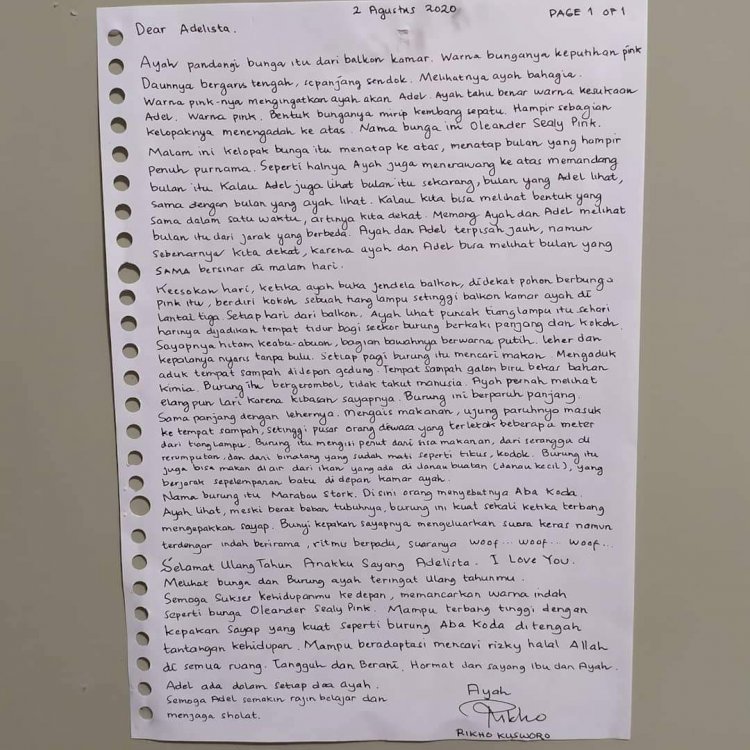 2 Agustus 2020
PAGE 1 OF 1
Dear Adelista.
Ayah pandangi bunga itu dari balkon kamar. Warna bunganya keputihan pink
Daunnya bergaris tengah, sepanjang sendok. Melihatnya ayah bahagia.
Warna pink-nya mengingatkan ayah akan Adel. Ayah tahu benar warna kesukaan
Adel. Warna pink. Bentuk bunganya mirip kembang sepatu. Hampir sebagian
kelopaknya menengadah ke atas. Nama bunga ini Oleander Sealy Pink.
Malam ini kelopak bunga itu menatap ke atas, menatap bulan yang hampir
penuh purnama. Seperti halnya Ayah juga menerawang ke atas memandang
bulan itu Kalau Adel juga lihat bulan itu sekarang, bulan yang Adel lihat,
sama dengan bulan yang ayah lihat. Kalau kita bisa melihat bentuk yang
sama dalam satu waktu, artinya kita dekat. Memang Ayah dan Adel melihat
bulan itu dari jarak yang berbeda. Ayah dan Adel terpisah jauh, namun
sebenarnya kita dekat, karena ayah dan Adel bisa melihat bulan yang
SAMA bersinar di malam hari.
Keesokan hari, ketika ayah buka jendela balkon, didekat pohon berbunga
pink itu, berdiri kokoh sebuah tiang lampu setinggi balkon kamar ayah di
lantai tiga. Setiap hari dari balkon, Ayah lihat puncak tiang lampu itu sehari
harinya dijadikan tempat tidur bagi seekor burung berkaki panjang dan kokoh.
Sayapnya hitam keabu-abuan, bagian bawahnya berwarna putih. Leher dan
kepalanya nyaris tanpa bulu. Setiap pagi burung itu mencari makan. Mengaduk
aduk tempat sampah didepan gedung. Tempat sampah galon biru bekas bahan
kimia. Burung itu bergerombol, tidak takut manusia. Ayah pernah melihat
elang pun lari karena kibasan sayapnya. Burung ini berparuh panjang.
Sama panjang dengan lehernya. Mengais makanan, ujung paruhnya masuk
ke tempat sampah, setinggi pusar orang dewasa yang terletak beberapa meter
dari tiang lampu. Burung itu mengisi perut dari sisa makanan, dari serangga di
rerumputan, dan dari binatang yang sudah mati seperti tikus, kodok. Burung itu
juga bisa makan di air dari ikan yang ada di danau buatan (danau kecil), yang
berjarak sepelemparan batu di depan kamar ayah.
Nama burung itu Marabou Stork. Disini orang menyebutnya Aba Koda.
Ayah lihat, meski berat beban tubuhnya, burung ini kuat sekali ketika terbang
mengepakkan sayap. Bunyi kepakan sayapnya mengeluarkan suara keras namun
terdengar indah berirama, ritmis berpadu, suaranya woof... woof... woof...
Selamat Ulang Tahun Anakku Sayang Adelista. I Love You.
Melihat bunga dan Burung ayah teringat ulang tahunmu.
Semoga Sukses kehidupanmu kedepan, memancarkan warna indah
seperti bunga Oleander Sealy Pink. Mampu terbang tinggi dengan
kepakan sayap yang kuat seperti burung Aba Koda ditengah
tantangan kehidupan. Mampu beradaptasi mencari rizky halal Allah
di semua ruang. Tangguh dan Berani. Hormat dan sayang ibu dan Ayah.
Adel ada dalam setiap doa ayah.
Semoga Adel semakin rajin belajar dan
menjaga sholat.
Ayah
Rikho
RIKHO KUSWORO